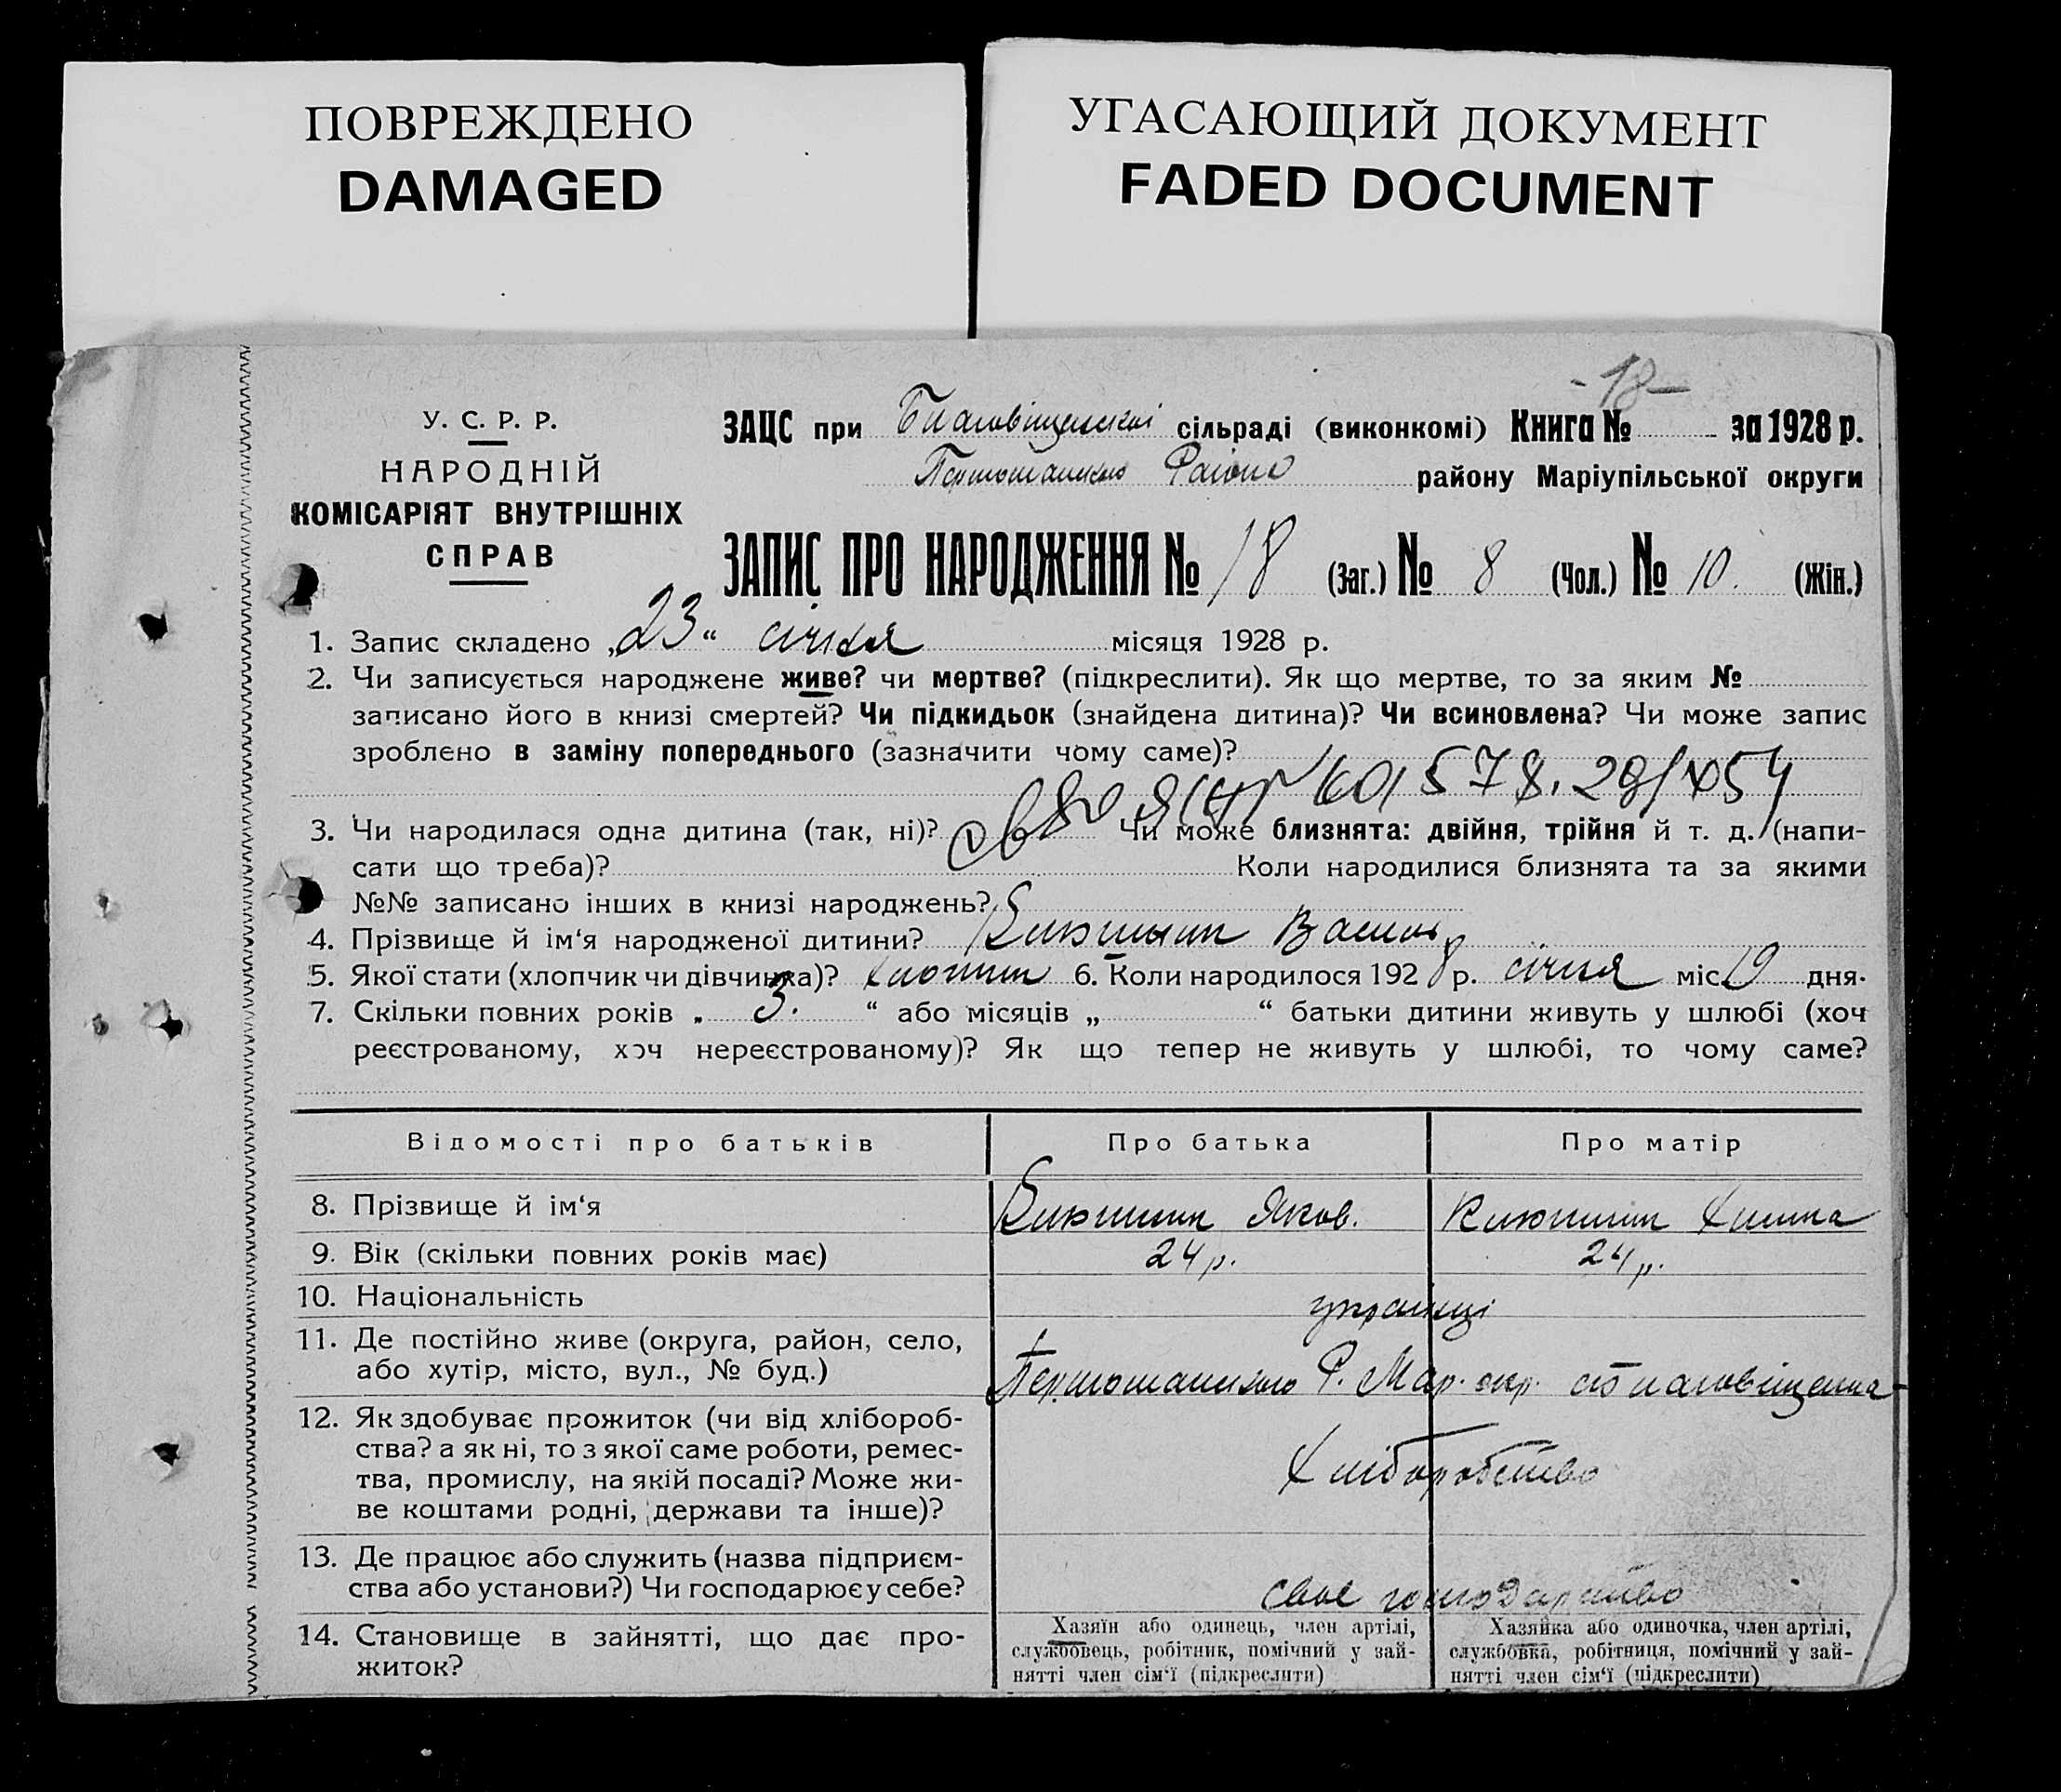 ПОВРЕЖДЕНО
DAMAGED
УГАСАЮЩИЙ ДОКУМЕНТ
FADED DOCUMENT
-18-
У. С. Р. Р.
НАРОДНІЙ
КОМІСАРІЯТ ВНУТРІШНІХ
СПРАВ
ЗАЦС при Благовіщенскої сільраді (виконкомі) Книга № за 1928 р.
району Маріупільської округи
ЗАПИС ПРО НАРОДЖЕННЯ № 18 (Заг.) № 8 (Чол.) № 10. (Жін.)
1. Запис складено „23“ січня місяця 1928 р.
2. Чи записується народжене живе? чи мертве? (підкреслити). Як що мертве, то за яким №
записано його в книзі смертей? Чи підкидьок (знайдена дитина)? Чи всиновлена? Чи може запис
зроблено в заміну попереднього (зазначити чому саме)?
3. Чи народилася одна дитина (так, ні)? Чи може близнята: двійня, трійня й т. д. (напи-
сати що треба)? Коли народилися близнята та за якими
№№ записано інших в книзі народжень?
4. Прізвище й ім‘я народженої дитини? Василь
5. Якої стати (хлопчик чи дівчинка)? хлопчик 6. Коли народилося 1928 р. січня міс. 19 дня.
7. Скільки повних років „ 3. “ або місяців „ “ батьки дитини живуть у шлюбі (хоч
реєстрованому, хоч нереєстрованому)? Як що тепер не живуть у шлюбі, то чому саме?
Відомості про батьків Про батька Про матір
8. Прізвище й ім‘я Яков.
9. Вік (скільки повних років має) 24 р. 24 р.
10. Національність українці
11. Де постійно живе (округа, район, село,
або хутір, місто, вул., № буд.) Р. Мар. окр.
12. Як здобуває прожиток (чи від хлібороб-
ства? а як ні, то з якої саме роботи, ремес-
тва, промислу, на якій посаді? Може жи-
ве коштами родні, держави та інше)? Хліборобство
13. Де працює або служить (назва підприєм-
ства або установи?) Чи господарює у себе? своє господарство
14. Становище в зайнятті, що дає про-
житок?
Хазяїн або одинець, член артілі,
службовець, робітник, помічний у зай-
нятті член сім‘ї (підкреслити)
Хазяйка або одиночка, член артілі,
службовка, робітниця, помічний у зай-
нятті член сім‘ї (підкреслити)